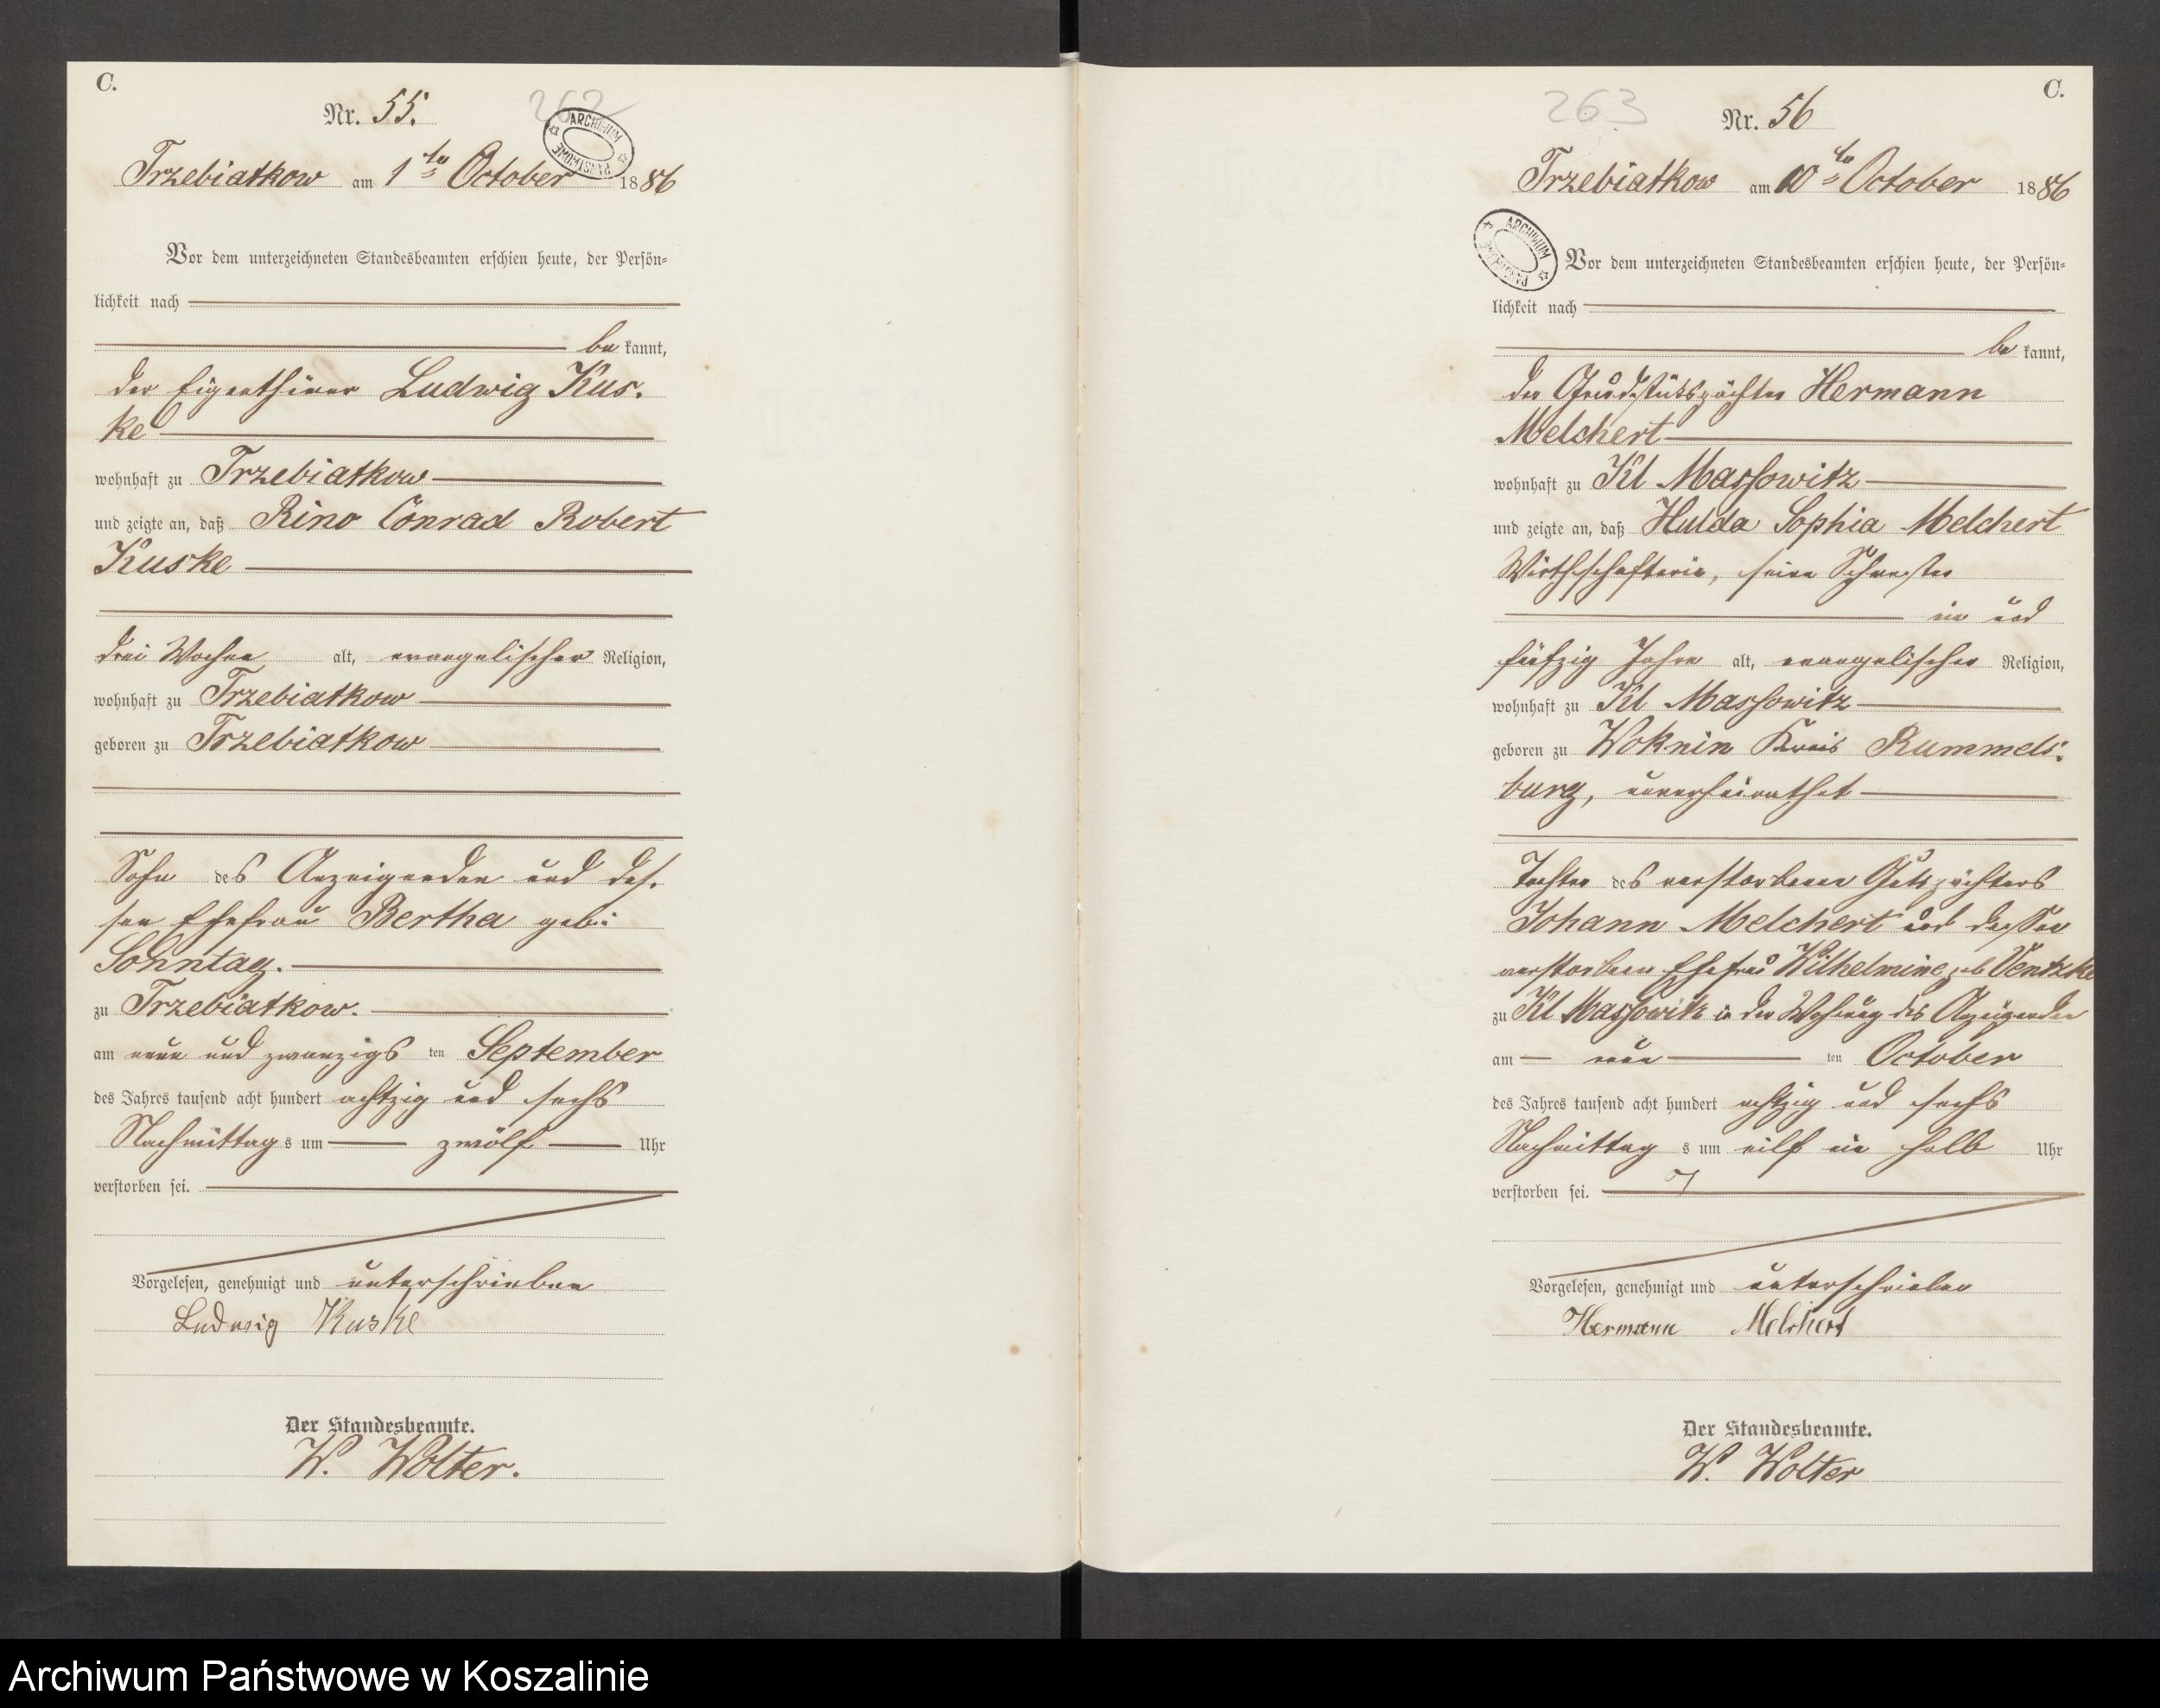 C.
Nr. 55.
262
ARCHIWUM PAŃSTWOWE
Trzebiatkow am 1ten October 1886
Vor dem unterzeichneten Standesbeamten erschien heute, der Persön-
lichkeit nach
be kannt,
der Eigenthümer Ludwig Kus-
ke
wohnhaft zu Trzebiatkow
und zeigte an, daß Rino Conrad Robert
Kuske
drei Wochen alt, evangelischer Religion,
wohnhaft zu Trzebiatkow
geboren zu Trzebiatkow
Sohn des Anzeigenden und des-
sen Ehefrau Bertha geb:
Sonntag.
zu Trzebiatkow.
am neun und zwanzigs ten September
des Jahres tausend acht hundert achtzig und sechs
Nachmittag s um zwölf Uhr
verstorben sei.
Vorgelesen, genehmigt und unterschrieben
Ludwig Kuske
Der Standesbeamte.
W. Wolter.
C.
263
Nr. 56
Trzebiatkow am 10ten October 1886
ARCHIWUM PAŃSTWOWE
Vor dem unterzeichneten Standesbeamten erschien heute, der Persön-
lichkeit nach
be kannt,
der Grundstückspächter Hermann
Melchert
wohnhaft zu Kl Massowitz
und zeigte an, daß Hulda Sophia Melchert
Wirthschafterin, seine Schwester
ein und
fünfzig Jahre alt, evangelischer Religion,
wohnhaft zu Kl Massowitz
geboren zu Woknin Kreis Rummels-
burg, unverheirathet
Tochter des verstorbenen Gutspächters
Johann Melchert und dessen
verstorbenen Ehefrau Wilhelmine geb Ventzke
zu Kl Massowitz in der Wohnung des Anzeigenden
am neun ten October
des Jahres tausend acht hundert achtzig und sechs
Nachmittag s um eilf ein halb Uhr
verstorben sei.
Vorgelesen, genehmigt und unterschrieben
Hermann Melchert
Der Standesbeamte.
W. Wolter
Archiwum Państwowe w Koszalinie